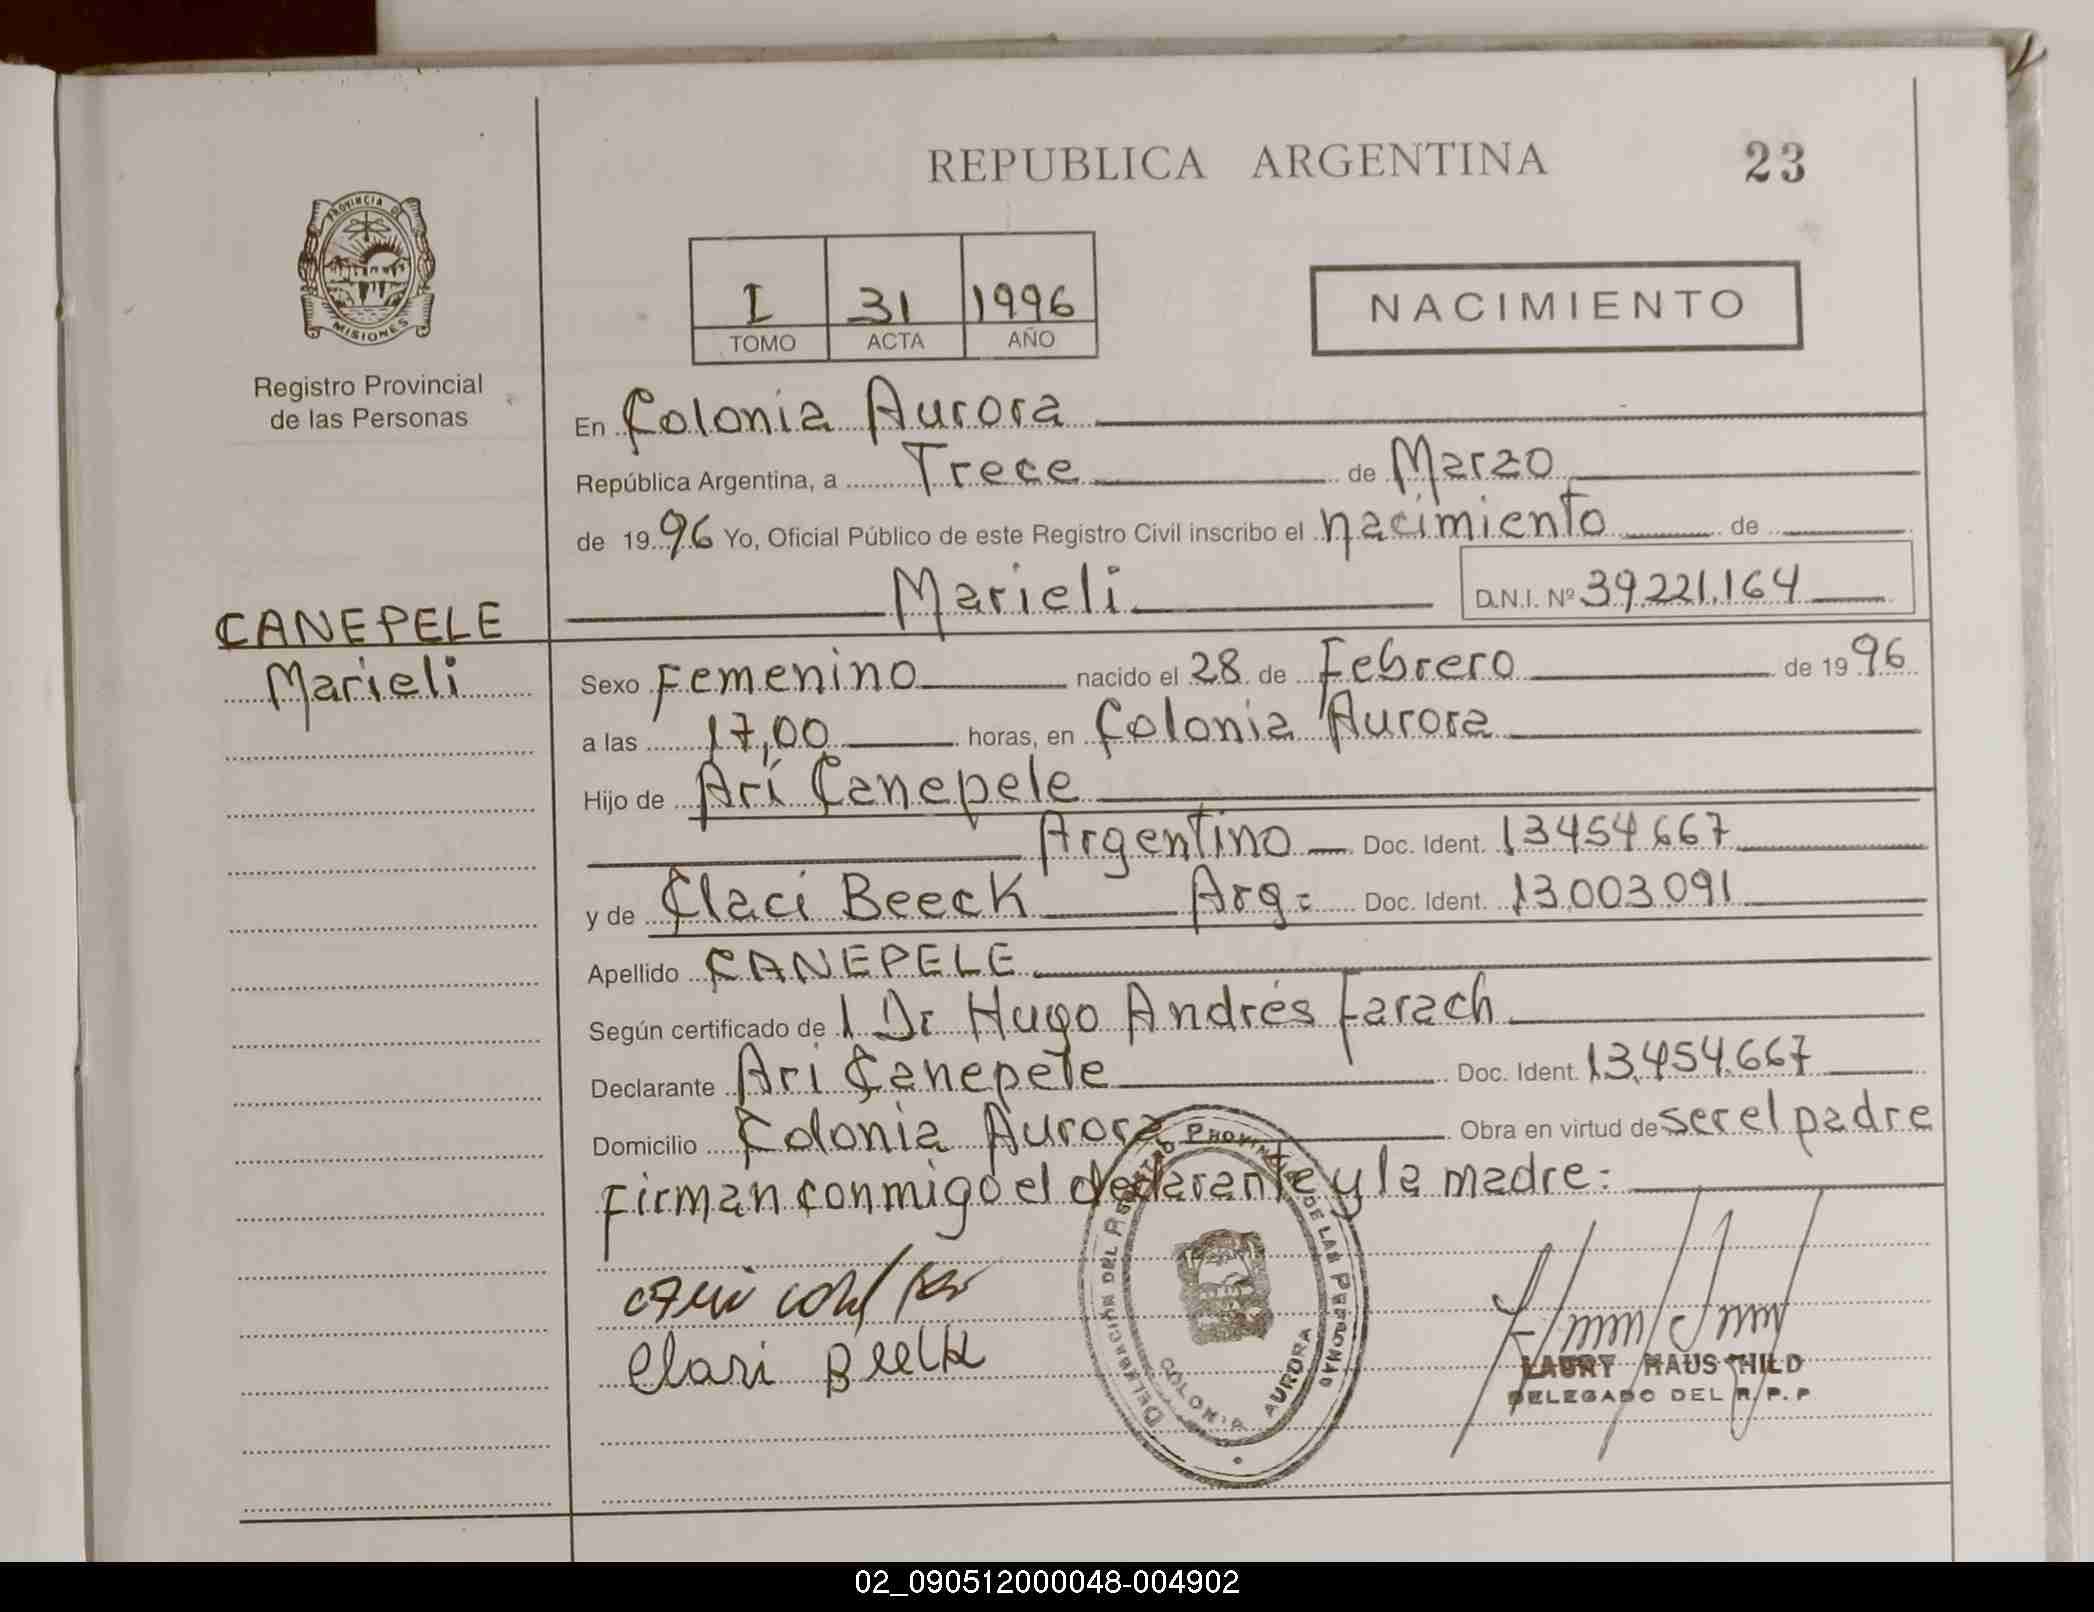 REPUBLICA ARGENTINA
23
PROVINCIA DE
MISIONES
Registro Provincial
de las Personas
I 31 1996
TOMO ACTA AÑO
NACIMIENTO
En Colonia Aurora
República Argentina, a Trece de Marzo
de 1996 Yo, Oficial Público de este Registro Civil inscribo el nacimiento de
Marieli D.N.I. Nº 39.221.164
CANEPELE
Marieli
Sexo Femenino nacido el 28 de Febrero de 1996
a las 17,00 horas, en Colonia Aurora
Hijo de Ari Canepele
Argentino Doc. Ident. 13454667
y de Claci Beeck Arg= Doc. Ident. 13.003.091
Apellido CANEPELE
Según certificado de 1 Dr Hugo Andrés Farach
Declarante Ari Canepele Doc. Ident. 13.454.667
Domicilio Colonia Aurora Obra en virtud de ser el padre
Firman conmigo el declarante y la madre:
DELEGACIÓN DEL REGISTRO PROVINCIAL DE LAS PERSONAS
COLONIA AURORA
LAURY HAUSCHILD
DELEGADO DEL R.P.P
02_090512000048-004902